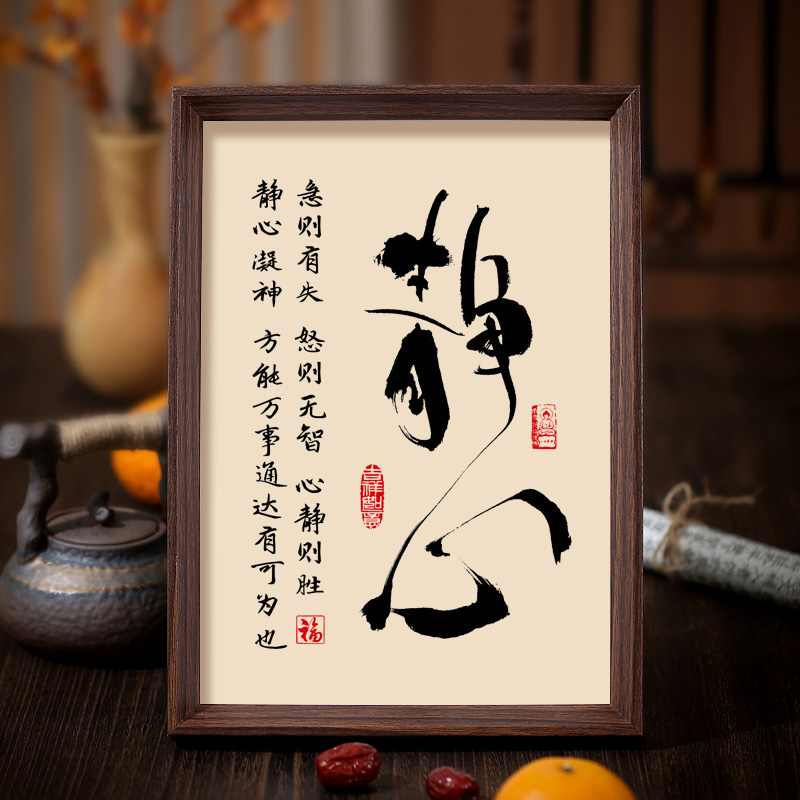 静心
吉祥如意
急则有失 怒则无智 心静则胜
福
静心凝神 方能万事通达有可为也